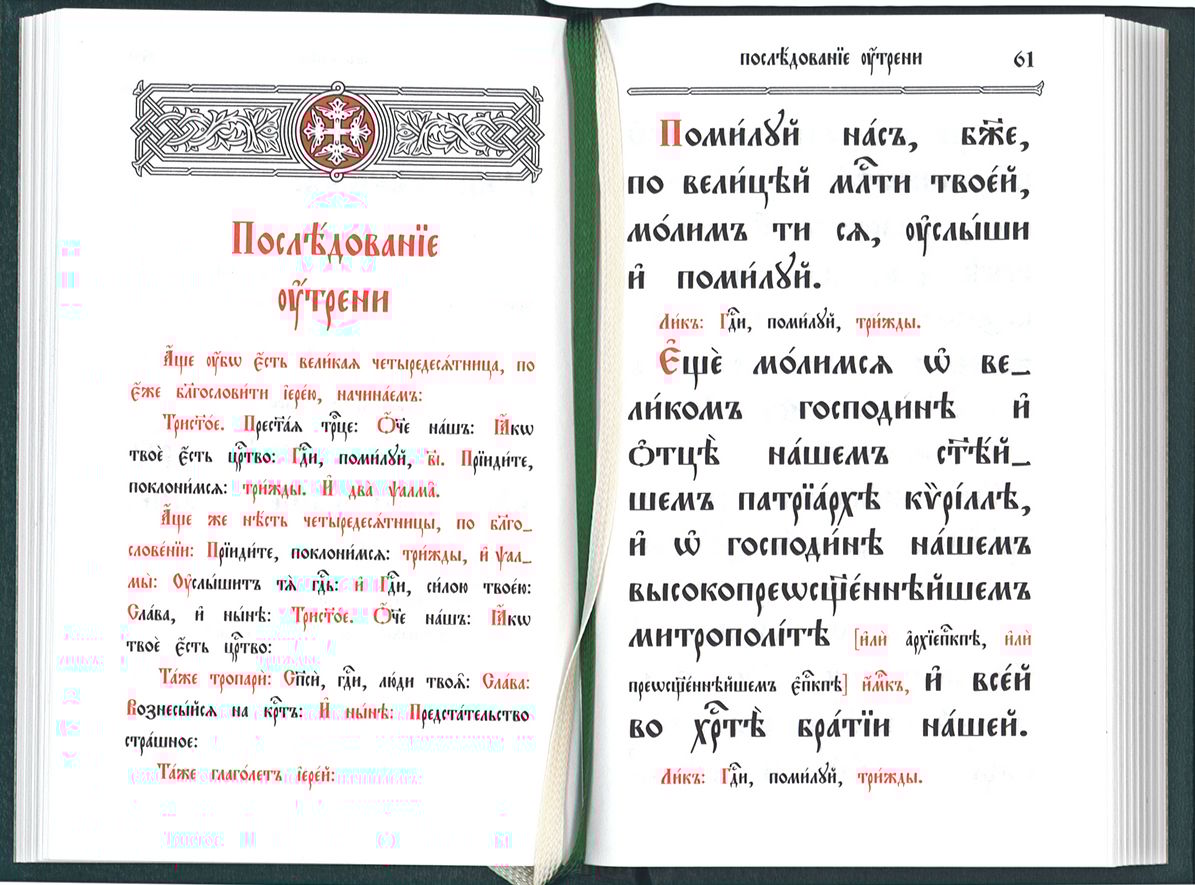 Послѣ́дованїе
ᲂу҆́трени
А҆́ще ᲂу҆́бѡ є҆́сть вели́каѧ четыредесѧ́тница, по
є҆́же бл҃гослови́ти і҆ере́ю, начина́емъ:
Трист҃о́е. Прест҃а́ѧ трⷪ҇це: Ѻ҆́ч҃е на́шъ: Ꙗ҆́кѡ
твоѐ є҆́сть црⷭ҇тво: Гдⷭ҇и, поми́лꙋй, в҃і. Прїиди́те,
поклони́мсѧ: три́жды. И҆ два̀ ѱалма̀.
А҆́ще же нѣ́сть четыредесѧ́тницы, по бл҃го_
слове́нїи: Прїиди́те, поклони́мсѧ: три́жды, и҆ ѱал_
мы̀: Оу҆слы́шитъ тѧ̀ гдⷭ҇ь: и҆ Гдⷭ҇и, си́лою твое́ю:
Сла́ва, и҆ ны́нѣ: Трист҃о́е. Ѻ҆́ч҃е на́шъ: Ꙗ҆́кѡ
твоѐ є҆́сть црⷭ҇тво:
Та́же тропарѝ: Сп҃сѝ, гдⷭ҇и, лю́ди твоѧ̑: Сла́ва:
Вознесы́йсѧ на крⷭ҇тъ: И҆ ны́нѣ: Предста́тельство
стра́шное:
Та́же глаго́летъ і҆ере́й:
послѣ́дованїе ᲂу҆́трени 61
Поми́лꙋй на́съ, бж҃е,
по вели́цѣй млⷭ҇ти твое́й,
мо́лимъ ти сѧ, ᲂу҆слы́ши
и҆ поми́лꙋй.
Ли́къ: Гдⷭ҇и, поми́лꙋй, три́жды.
Є҆щѐ мо́лимсѧ ѡ҆ ве_
ли́комъ господи́нѣ и҆
ѻ҆тцѣ̀ на́шемъ ст҃ѣ́й_
шемъ патрїа́рхѣ кѷрі́ллѣ,
и҆ ѡ҆ господи́нѣ на́шемъ
высокопреѡсщ҃е́ннѣйшемъ
митрополі́тѣ [и҆лѝ а҆рхїепⷭ҇кпѣ, и҆лѝ
преѡсщ҃е́ннѣйшемъ є҆пⷭ҇кпѣ] и҆́мⷬ҇къ, и҆ все́й
во хрⷭ҇тѣ̀ бра́тїи на́шей.
Ли́къ: Гдⷭ҇и, поми́лꙋй, три́жды.